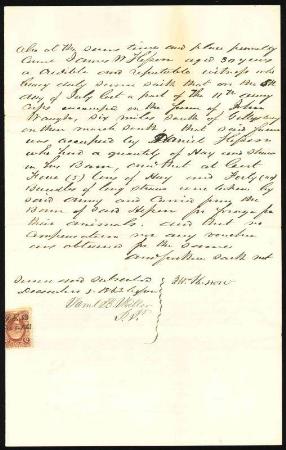 Also at the same time and place personally
Came James W Hepson aged 30 years
a credible and reputable witness who
being duly sworn saith that on the 5th
day of July last a part of the 11th army
Corps encamped on the farm of John
Waugh, six miles south of Gettysburg
on their march south that said farm
was occupied by Daniel Hepson
who had a quantity of Hay and Straw
in his Barn, and that at least
Five (5) tons of Hay and Forty (40)
Bundles of long straw were taken by
said army and carried from the
Barn of said Hepson for forage for
their animals. and that no
compensation nor any voucher
was obtained for the same
and further saith not
Sworn and subscribed
December 3 1863 before
J.W. Hepson
J.P.